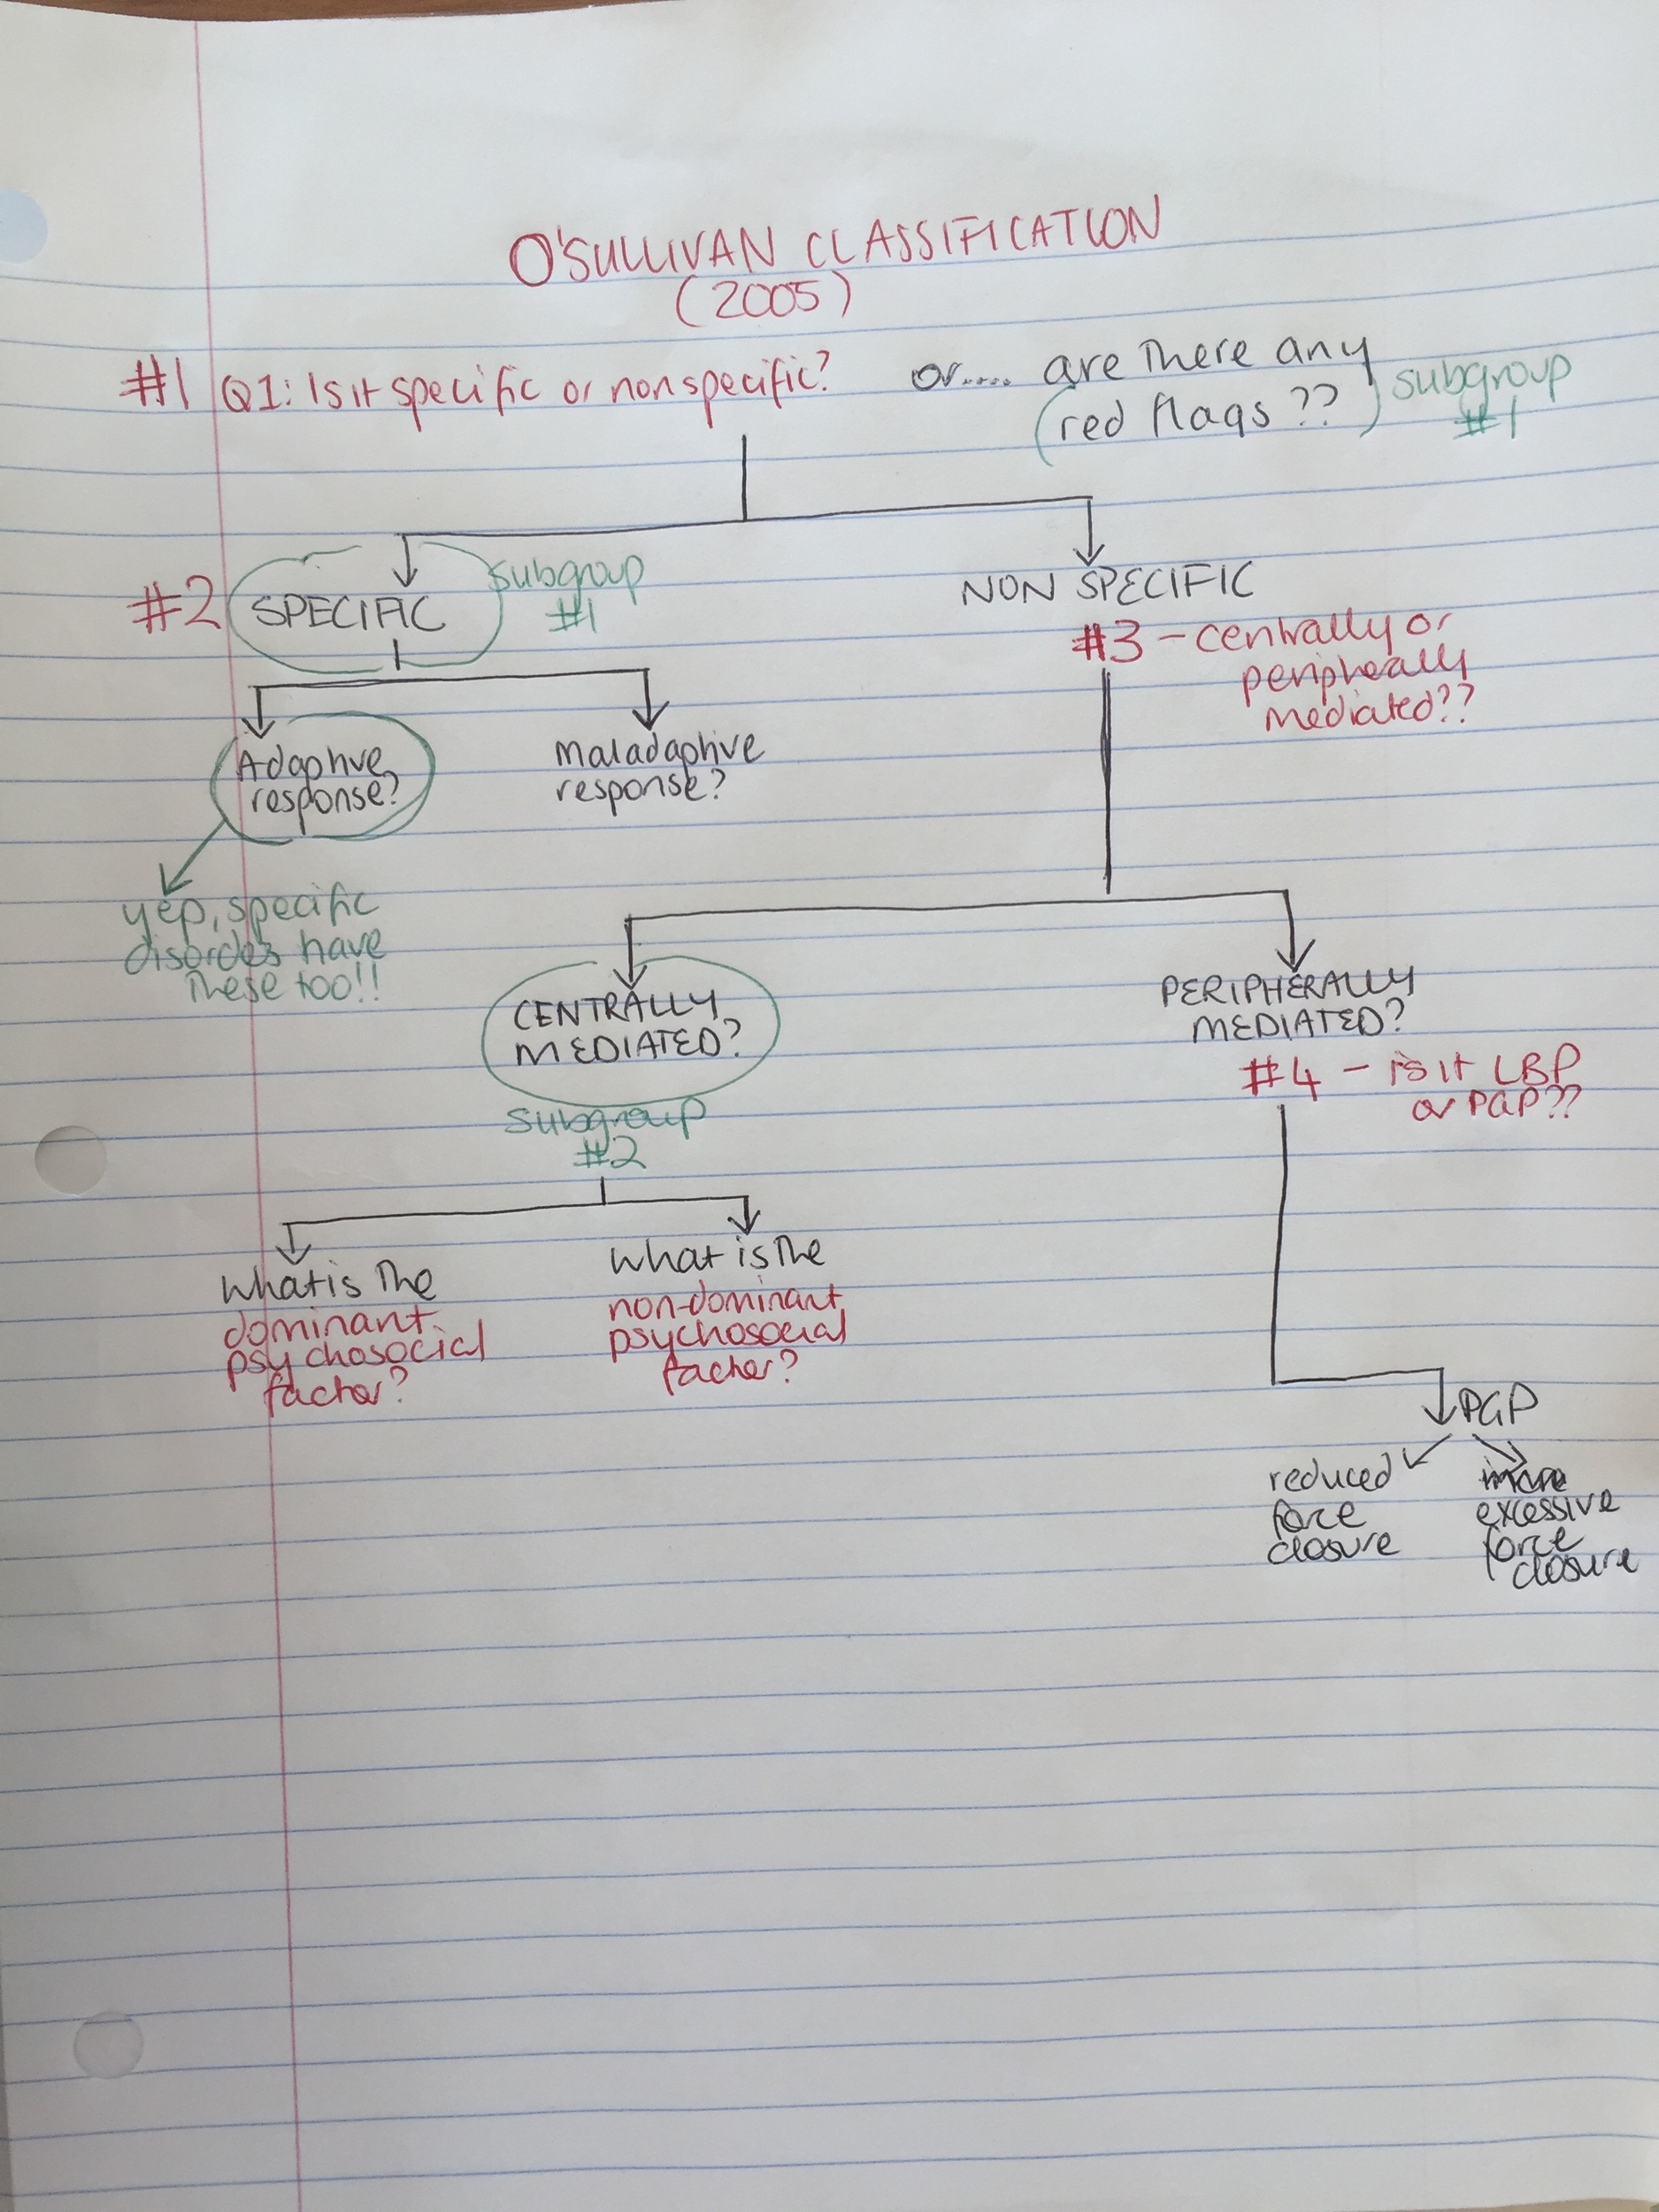 O'SULLIVAN CLASSIFICATION
(2005)
#1 Q1: Is it specific or nonspecific? or.... are there any
(red flags ??) subgroup
#1
#2 SPECIFIC
subgroup
#1
NON SPECIFIC
#3 - centrally or
peripherally
mediated??
Adaptive
response?
Maladaptive
response?
yep, specific
disordes have
these too!!
CENTRALLY
MEDIATED?
subgroup
#2
PERIPHERALLY
MEDIATED?
#4 - is it LBP
or PGP??
What is the
dominant
psychosocial
factor?
What is the
non-dominant
psychosocial
factor?
PGP
reduced
force
closure
excessive
force
closure